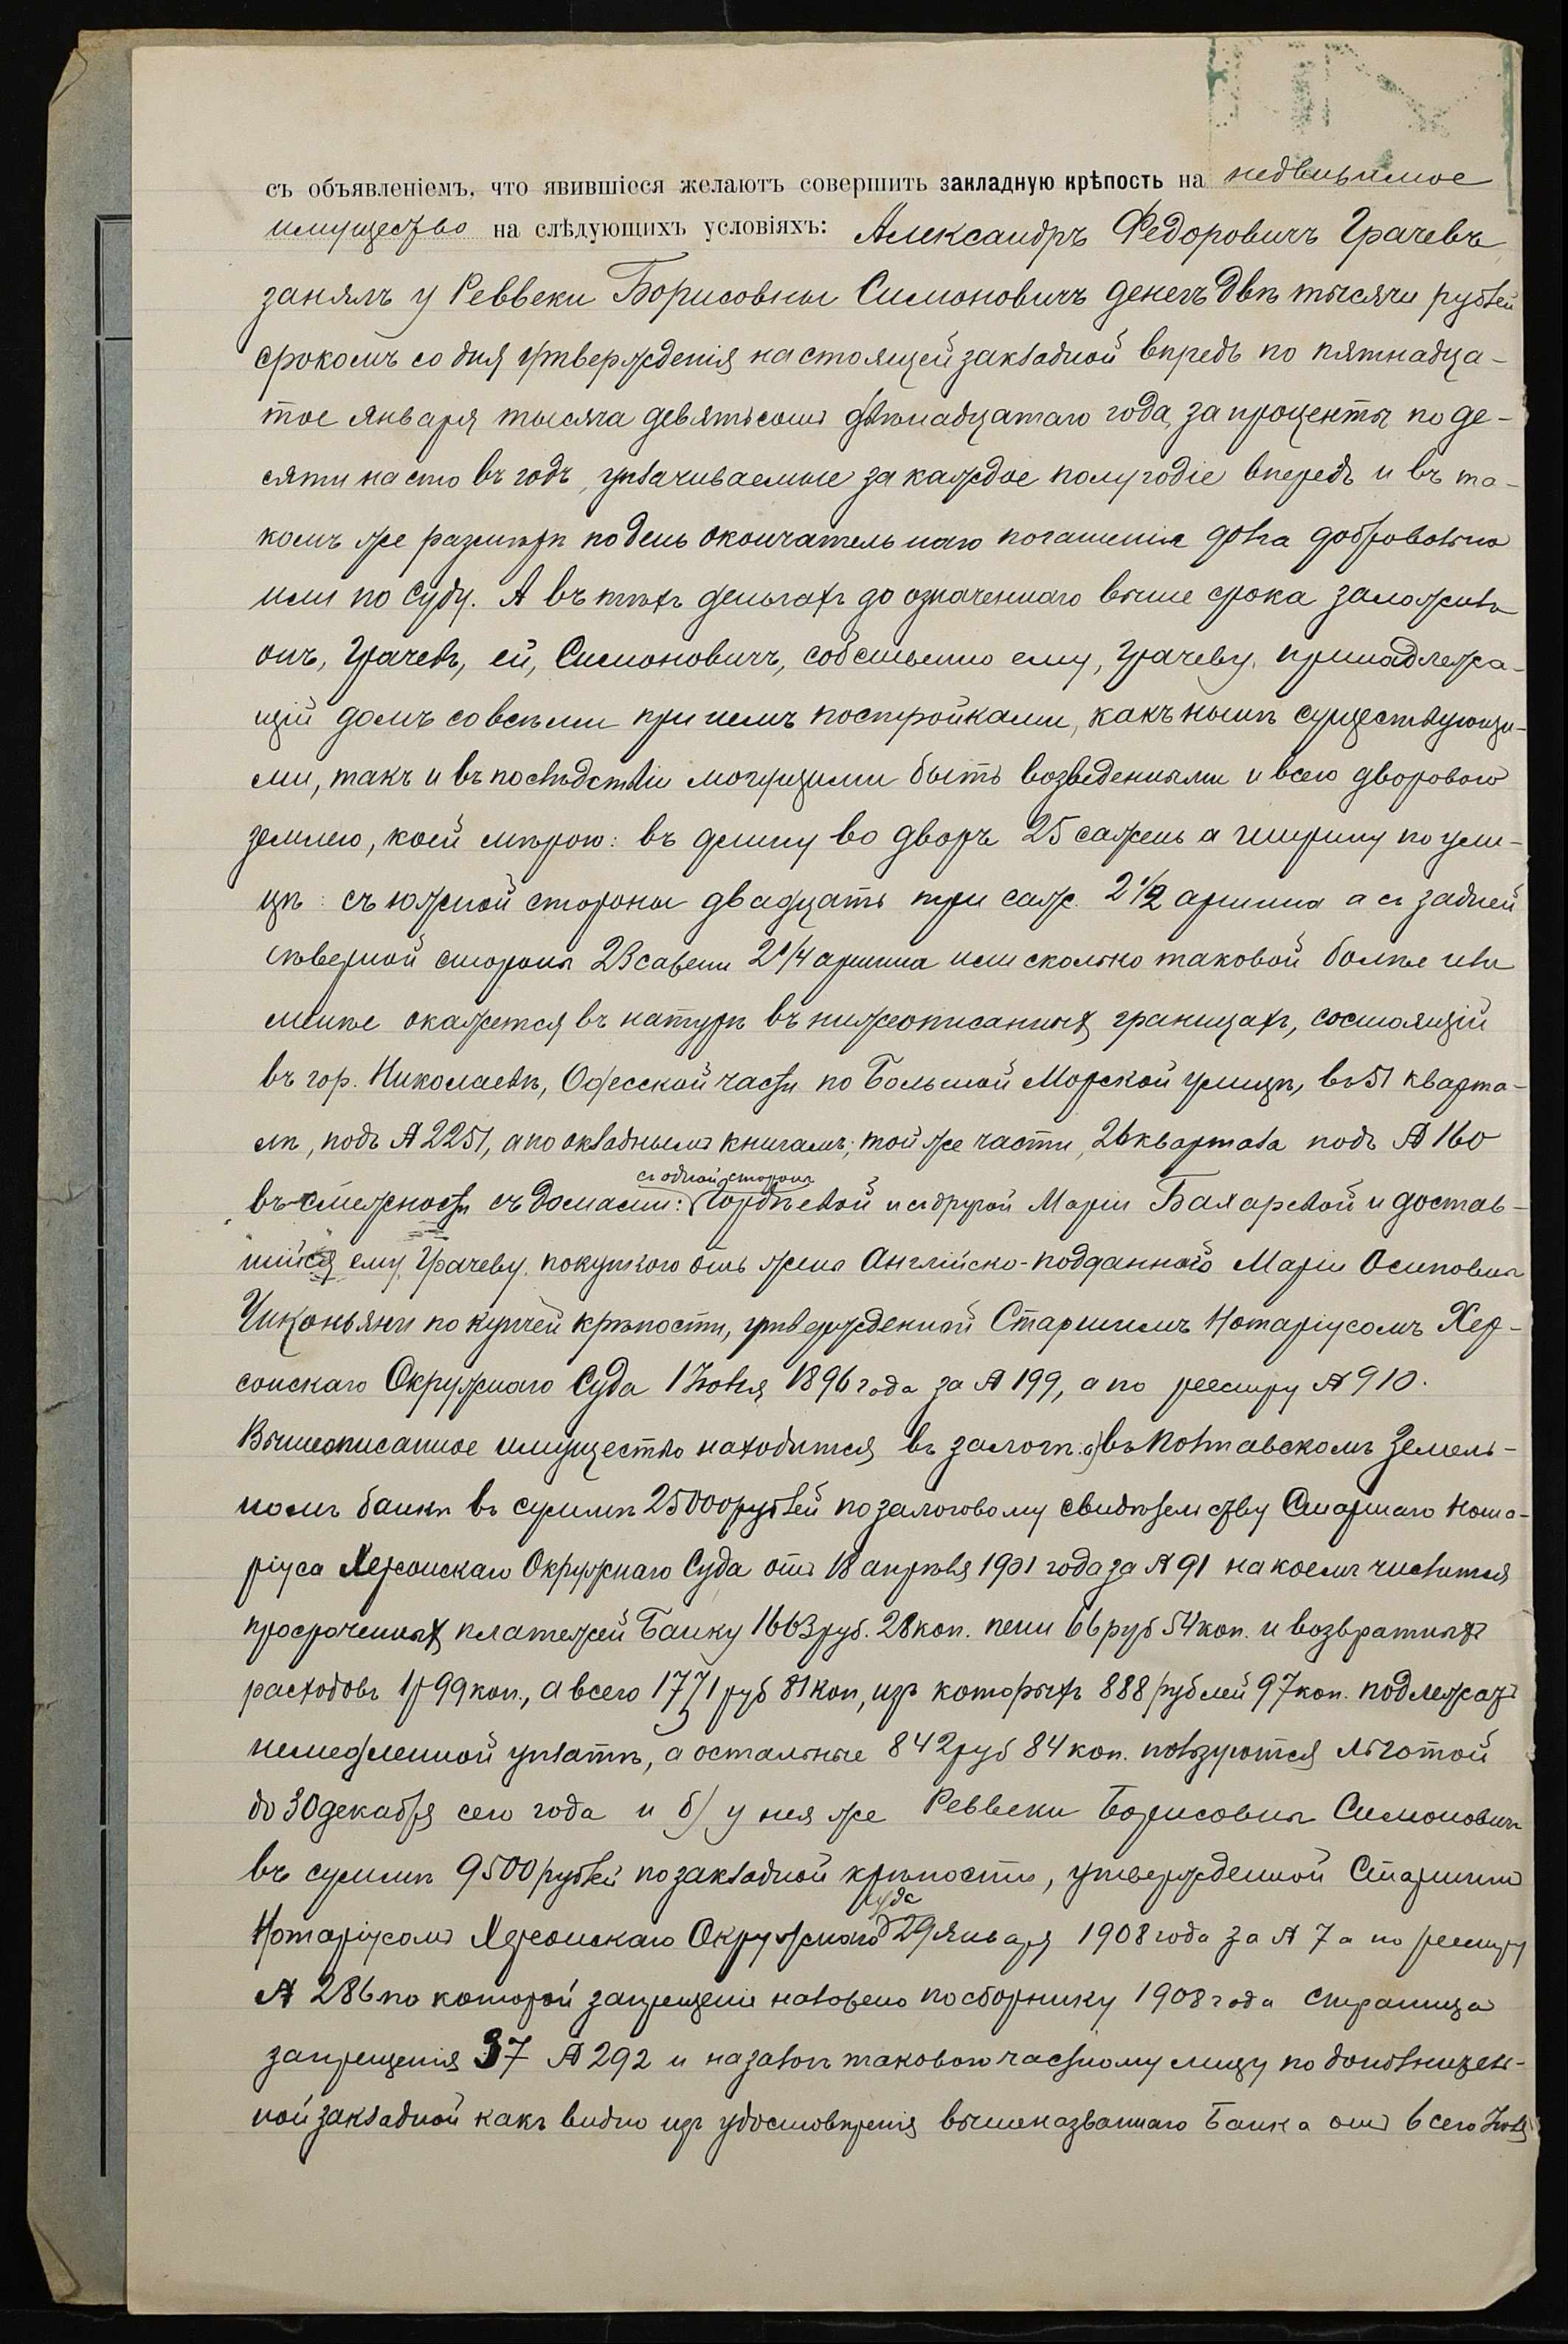 съ объявленіемъ, что явившіеся желаютъ совершить закладную крѣпость на недвижимое
имущество на слѣдующихъ условіяхъ: Александръ Федоровичъ Грачевъ
занялъ у Реввеки Борисовны Симоновичъ денегъ двѣ тысячи рублей
срокомъ со дня утвержденія настоящей закладной впредь по пятнадца-
тое января тысяча девятьсотъ двѣнадцатаго года, за проценты по де-
сяти на сто въ годъ, уплачиваемые за каждое полугодіе впередъ и въ та-
комъ же размѣрѣ по день окончательнаго погашенія долга добровольно
или по суду. А въ тѣхъ деньгахъ до означеннаго выше срока заложилъ
онъ, Грачевъ, ей, Симоновичъ, собственно ему, Грачеву, принадлежа-
щій домъ со всѣми при немъ постройками, какъ нынѣ существующи-
ми, такъ и въ послѣдствіи могущими быть возведенными и всею дворовою
землею, коей мѣрою: въ длину во дворъ 25 сажень а ширину по ули-
цѣ: съ южной стороны двадцать три саж. 2 1/2 аршина а съ задней
сѣверной стороны 23 сажени 2 1/4 аршина или сколько таковой болѣе или
менѣе окажется въ натурѣ въ нижеописанныхъ границахъ, состоящій
въ гор. Николаевѣ, Одесской части по Большой Морской улицѣ, въ 51 кварта-
лѣ, подъ № 2251, а по окладнымъ книгамъ; той же части, 26 квартала подъ № 160
въ смежности съ домами: съ одной стороны Гордѣевой и съ другой Маріи Бахаревой и достав-
шійся ему, Грачеву, покупкою отъ жены Англійско-подданного Маріи Осиповны
Чиконьяни по купчей крѣпости, утвержденной Старшимъ Нотаріусомъ Хер-
сонскаго Окружнаго Суда 1 Іюля 1896 года за № 199, а по реестру № 910.
Вышеописанное имущество находится въ залогѣ: а) въ Полтавскомъ Земель-
номъ банкѣ въ суммѣ 25000 рублей по залоговому свидѣтельству Старшаго Нота-
ріуса Херсонскаго Окружнаго Суда отъ 18 апрѣля 1901 года за № 91 на коемъ числится
просроченныхъ платежей Банку 1663 руб. 28 коп. пени 66 руб 54 коп. и возвратныхъ
расходовъ 1 р 99 коп., а всего 1731 руб 81 коп, изъ которыхъ 888 рублей 97 коп. подлежатъ
немедленной уплатѣ, а остальные 842 руб 84 коп. пользуются льготой
до 30 декабря сего года и б) у нея же Реввеки Борисовны Симоновичъ
въ суммѣ 9500 рублей по закладной крѣпости, утвержденной Старшимъ
Нотаріусомъ Херсонскаго Окружнаго Суда 29 Января 1908 года за № 7 а по реестру
№ 286 по которой запрещеніе наложено по сборнику 1908 года страница
запрещенія 37 № 292 и на залогъ таковой частному лицу по
ной закладной какъ видно изъ удостовѣренія вышеназваннаго Банка отъ 6 сего Іюля